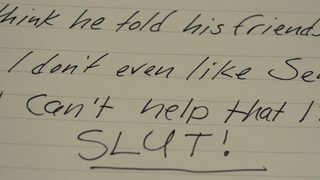 think he told his friends
I don't even like Se
I can't help that I
SLUT!